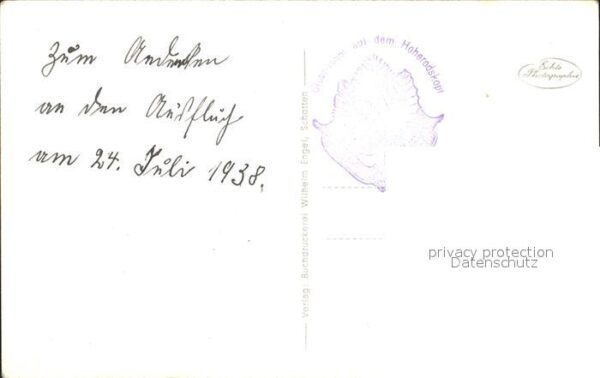 Zum Andenken
an den Ausflug
am 24. Juli 1938.
Verlag: Buchdruckerei Wilhelm Engel, Schotten
auf dem Hoherodskopf
Echte
Photographie
privacy protection
Datenschutz